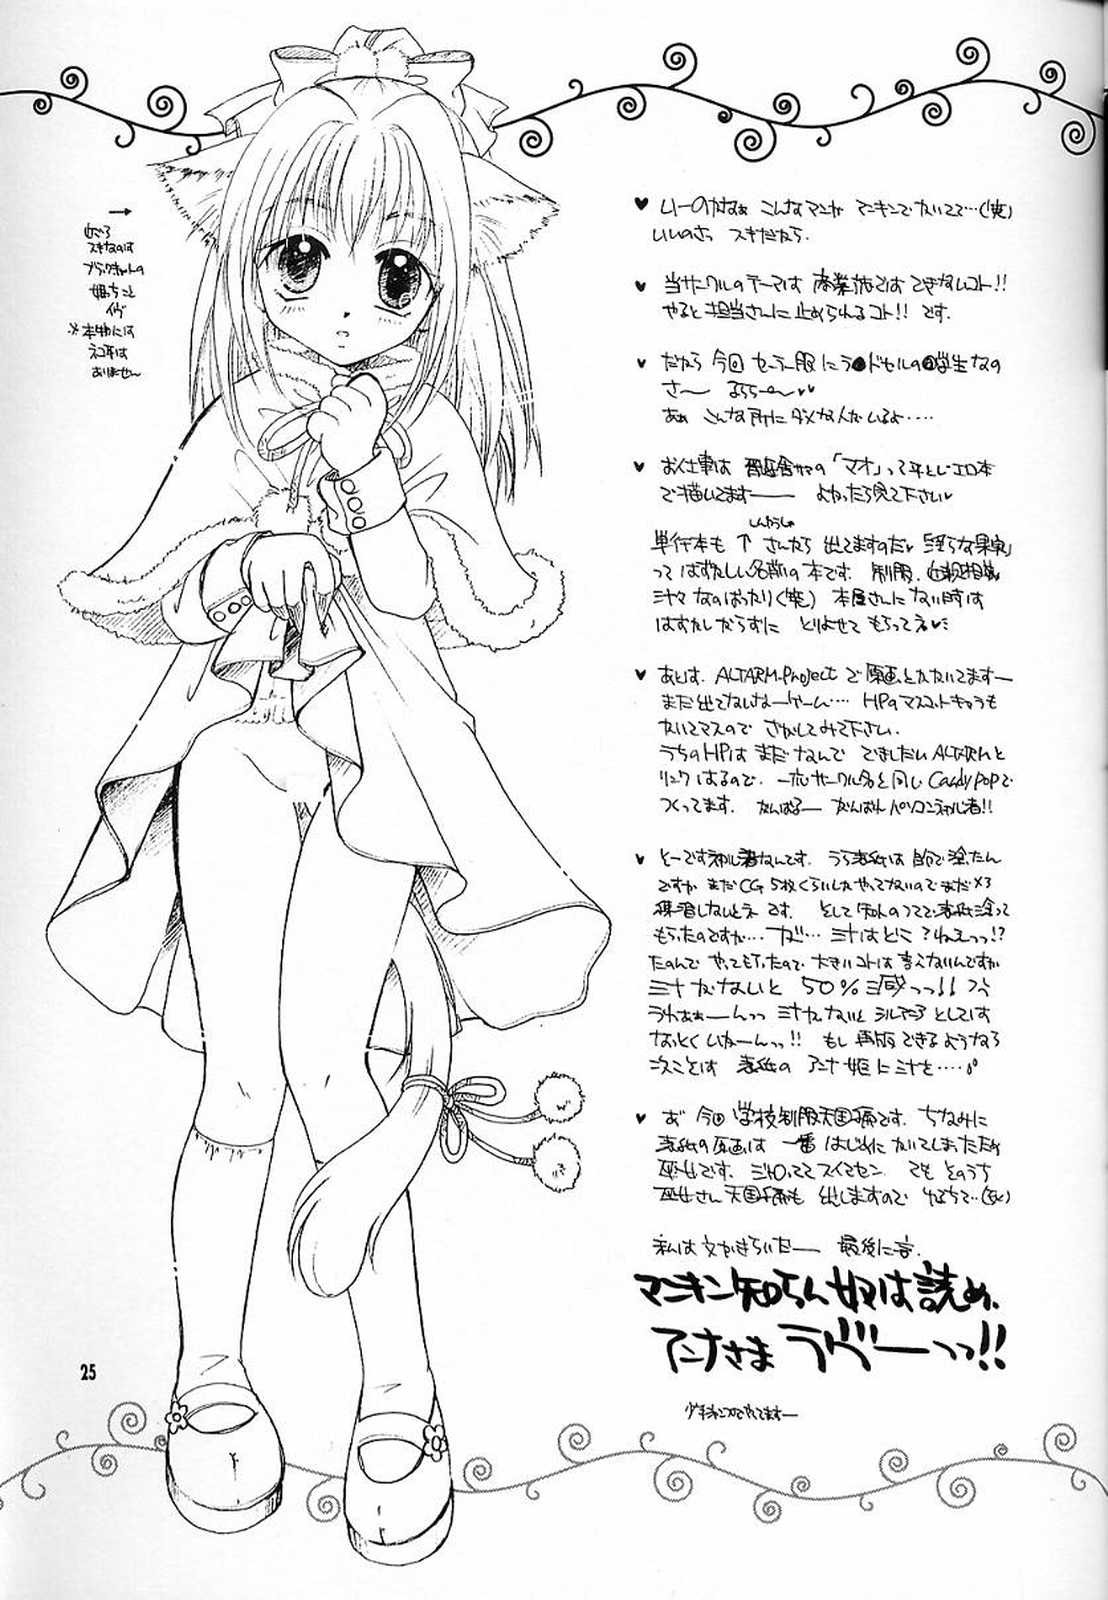 ♥ いーのかなぁ こんなマンガ マーキンでかいてて…(笑)
いいのさっ スキだから.
♥ 当サークルのテーマは 商業誌では できないコト!!
やると 担当さんに 止められるコト!! です.
♥ だから 今回 セーラー服に ラ●ドセルの●学生なの
さ～
あぁ こんな所に ダメな人がいるよ……
♥ お仕事は 「マオ」って
で描いてます―― よかったら見て下さい♥
単行本も ↑ さんから 出てますのだ♥
って はずかしい名前の 本です. 制服,
なのばかり(笑) 本屋さんに ない時は
はずかしがらずに とりよせて もらってネ♥
♥ あとは, ALTARM-Project で 原画とかかいてます―
まだ出てないなーゲーム… HPのマスコットキャラも
かいてマスので さがしてみて下さい.
うちのHPは まだなんで できしだい ALTARMと
リンクはるので, 一応サークル名と同じ Candy popで
つくってます. がんばる― がんばれ パソコン初心者!!
♥ とーです初心者なんです. うら表紙は 自分で塗たん
ですが まだ CG 5枚くらいしか やってないので まだ×2
練習しないとネ です. そして 知人のつてで 表紙塗って
もらったのですが… ガ… ミナはどこ?ねぇっっ!?
たのんで やってもらったので 大きいコトは 言えないんですが
ミナがないと 50%減っっ!!
うわぁぁーんっっ ミナがないと としては
なっとく いかーんっっ!! もし 再版できるようなら
次こそは 表紙の アンナ姫に ミナを……
♥ あ 今回 学校制服天国編です. ちなみに
表紙の原画は 一番 はじめに かいてしまったため
巫女です. スイマセン でも そのうち
巫女さん 天国編も 出しますので
私は 文がきらいだ― 最後に一言.
マンキン知らん奴は読め,
アンナさま ラヴーーっっ!!
→
近ごろ
スキなのは
ブラックキャットの
姫っちこと
イヴ
※本物には
ネコ耳は
ありません
25